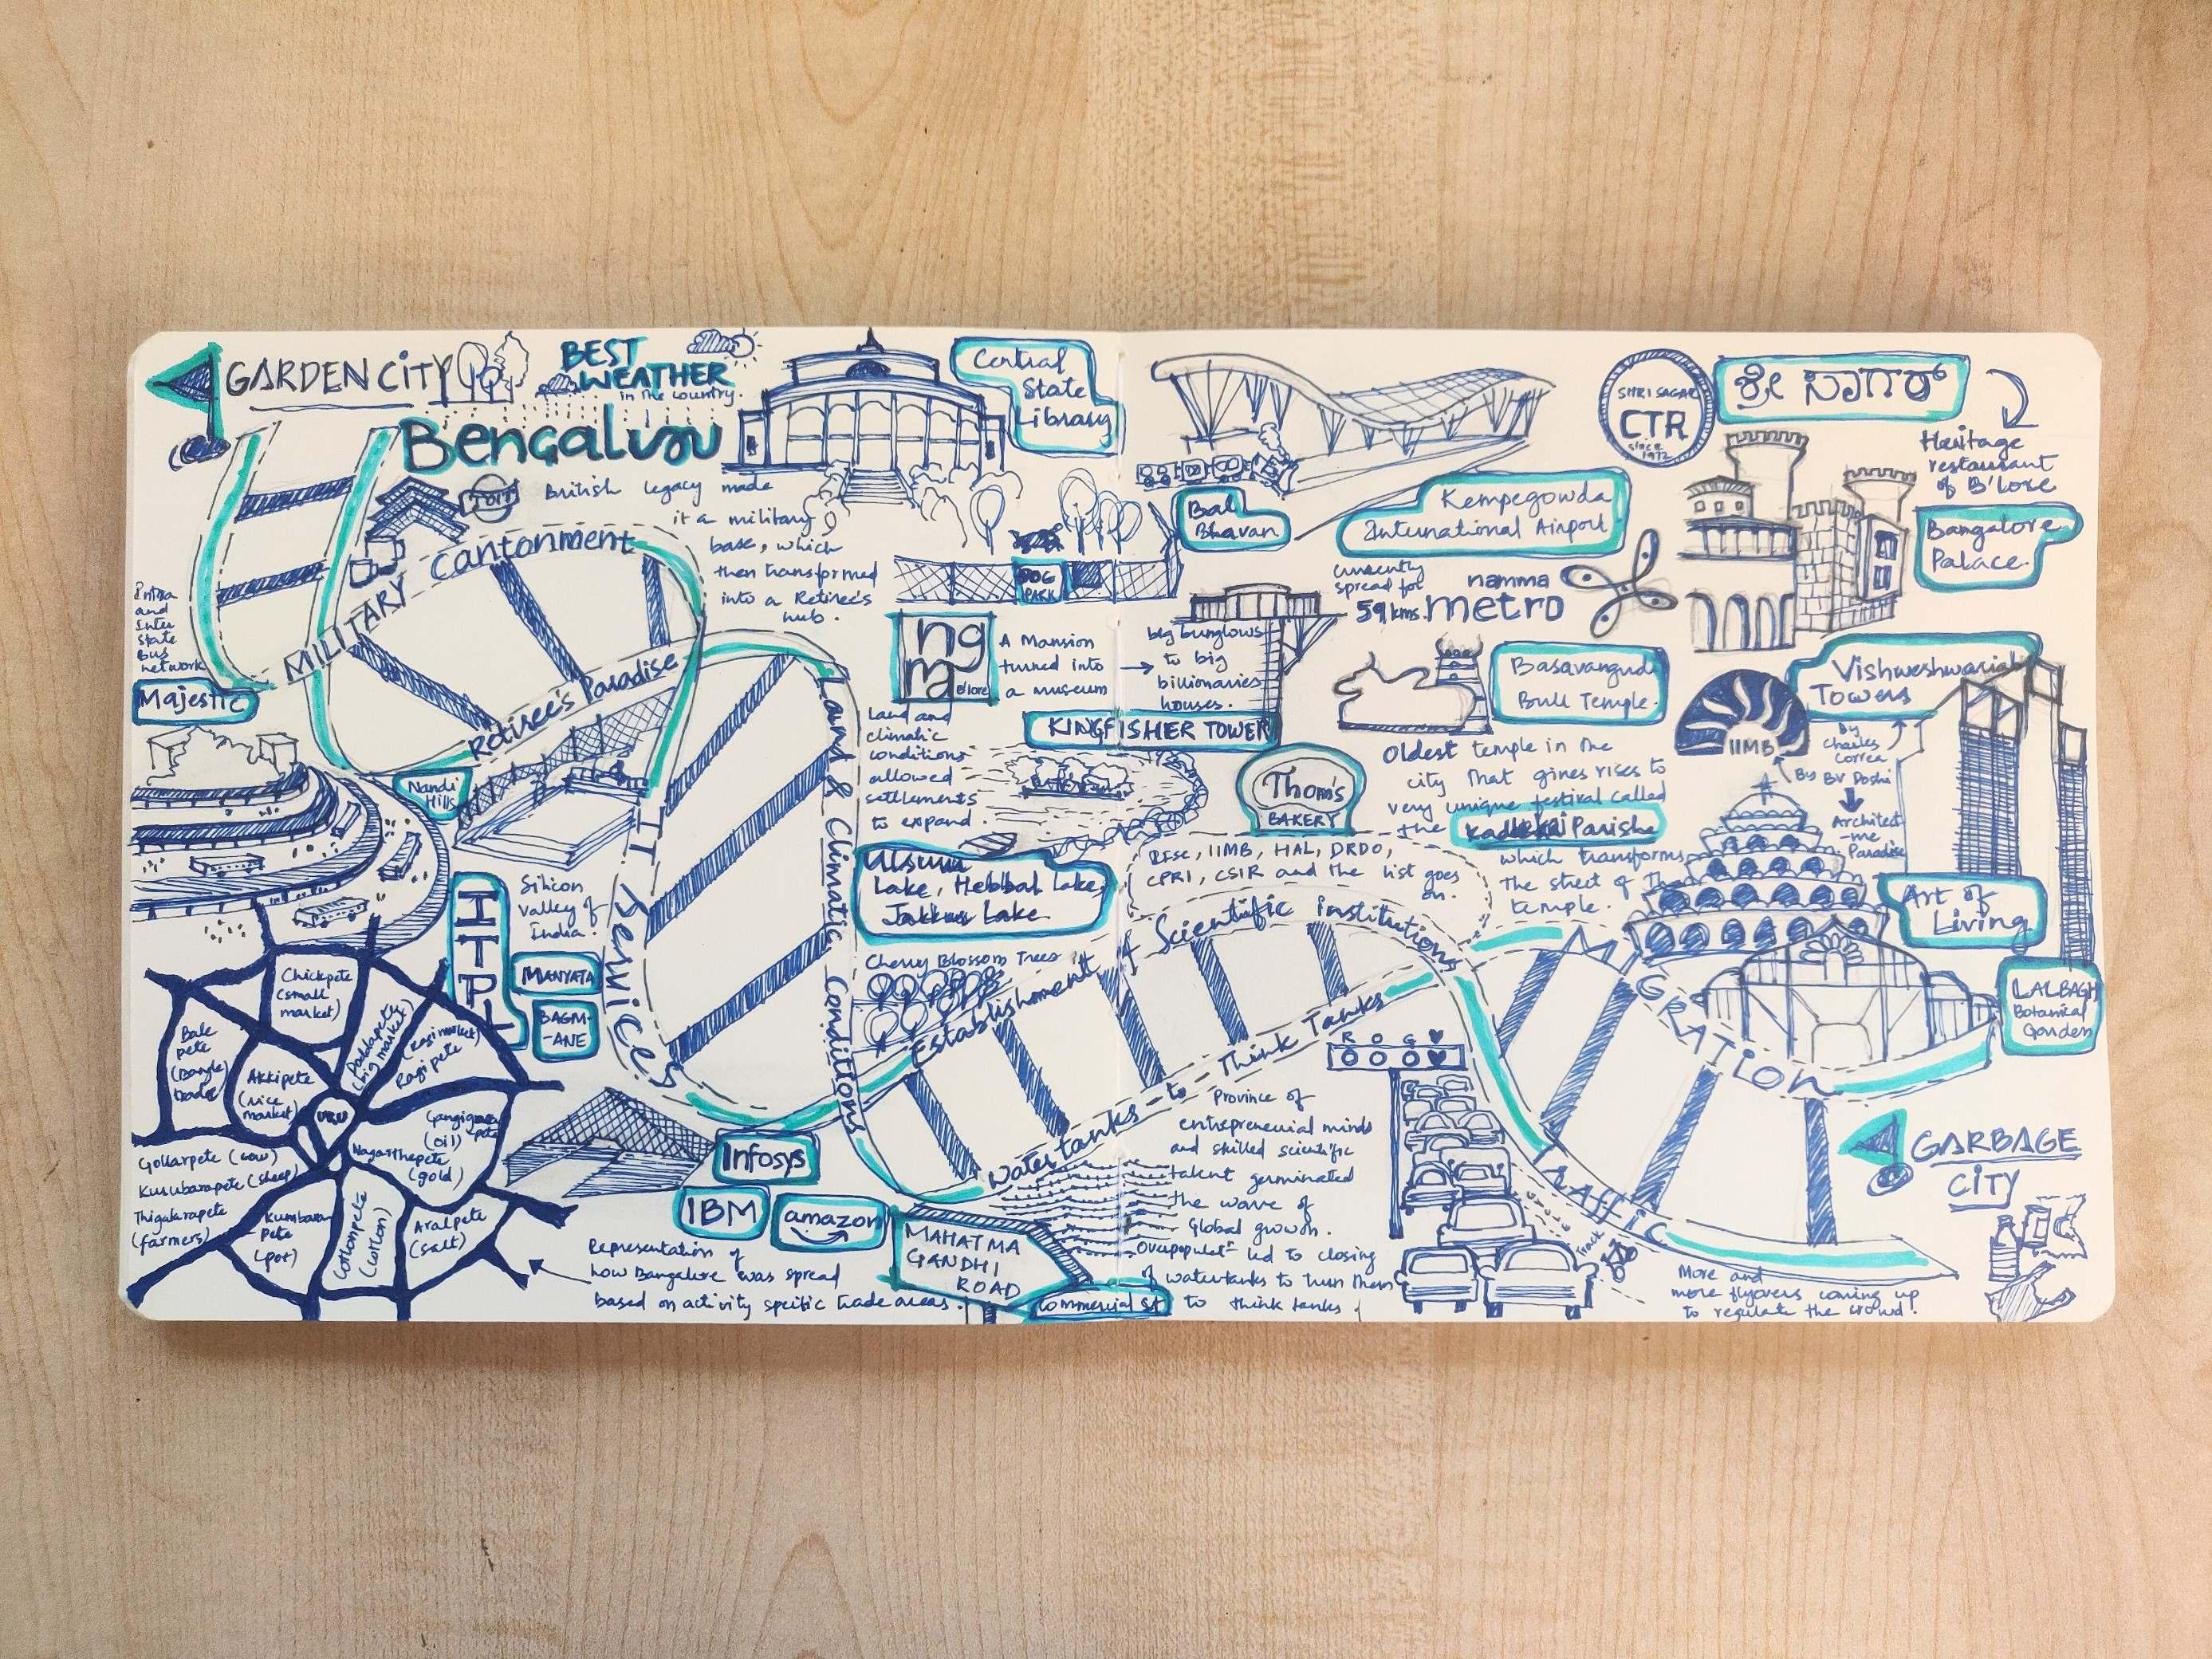 GARDEN CITY
BEST
WEATHER
in the country.
Bengaluru
TOIT
British legacy made
it a military
base, which
then transformed
into a Retiree's
hub.
Central
State
Library
MILITARY Cantonment
Retiree's Paradise
Intra
and
Inter
State
Bus
network
Majestic
Nandi
Hills
IT Services
Land & Climatic Conditions
Silicon
Valley of
India.
ITPL
MANYATA
BAGM-
-ANE
Chickpete
(small
market)
Bale
pete
(Bangle
trade)
Akkipete
(rice
market)
Doddapete
(big market)
(Ragi market)
Ragipete
URU
pete
(oil)
Nagarthepete
(gold)
Gollarpete (cow)
Kurubarapete (sheep)
Thigalarapete
(farmers)
Kumbara
Pete
(pot)
Cottonpete
(cotton)
Aralpete
(salt)
Representation of
how Bangalore was spread
based on activity specific trade areas.
Infosys
IBM
amazon
MAHATMA
GANDHI
ROAD
Commercial St
DOG
PARK
ngma
B'lore
A Mansion
turned into
a museum
big bunglows
to big
billionaries
houses.
KINGFISHER TOWER
Land and
climatic
conditions
allowed
settlements
to expand.
Ulsuru
Lake, Hebbal Lake,
Jakkur Lake
Cherry Blossom Trees
Establishment of Scientific institutions
IISc, IIMB, HAL, DRDO,
CPRI, CSIR and the list goes
on.
Water tanks - to - Think Tanks
Province of
entrepreneurial minds
and skilled scientific
talent germinated
the wave of
Global growth.
led to closing
of watertanks to turn them
to think tanks
Bal
Bhavan
Kempegowda
International Airport
currently
spread for
59 kms.
namma
metro
SHRI SAGAR
CTR
since
1972
Heritage
restaurant
of B'lore
Bangalore
Palace.
Basavangudi
Bull Temple.
Oldest temple in the
city that gives rises to
very unique festival called
the Kadlekai Parishe
which transforms
the street of the
temple.
Thom's
BAKERY
IIMB
Vishweshwariah
Towers
By
Charles
Correa
By BV Doshi
Architect
-ure
Paradise
Art of
Living
LALBAGH
Botanical
Garden
MIGRATION
R O G
Traffic
Track
More and
more flyovers coming up
to regulate the crowd!
GARBAGE
CITY